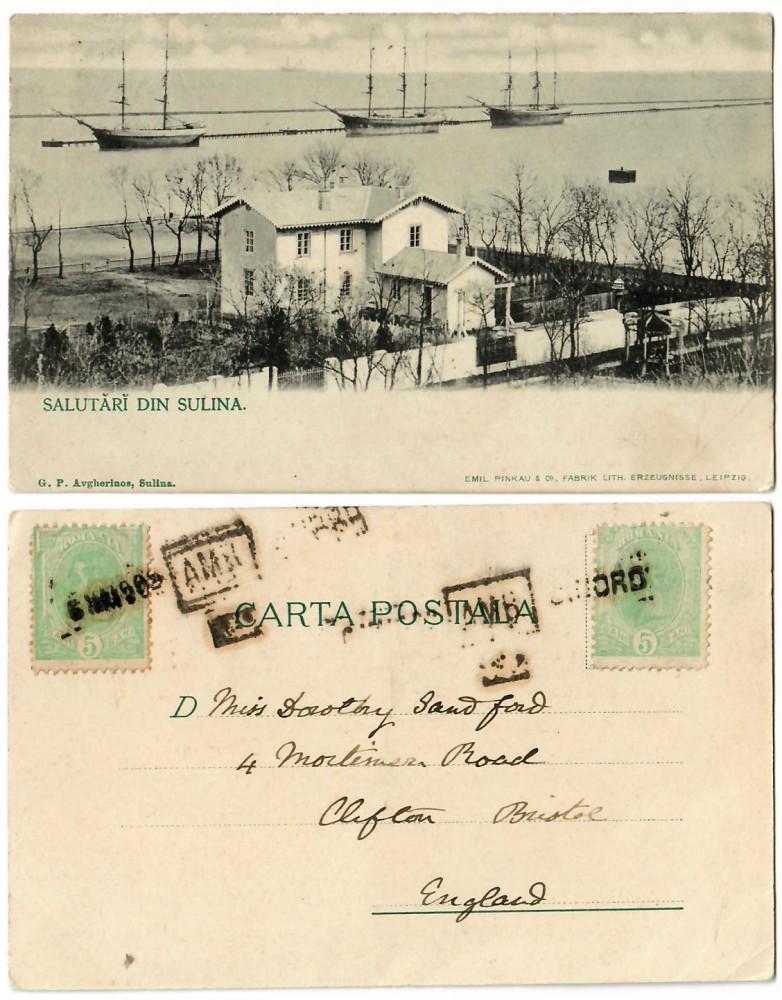 SALUTĂRĬ DIN SULINA.
G. P. Avgherinos, Sulina.
EMIL PINKAU & CO, FABRIK LITH. ERZEUGNISSE, LEIPZIG.
ROMANIA
5
BANI 5 BANI
AMBI
CARTA POSTALA
5
D Miss Dorothy Sandford
4 Mortimer Road
Clifton Bristol
England